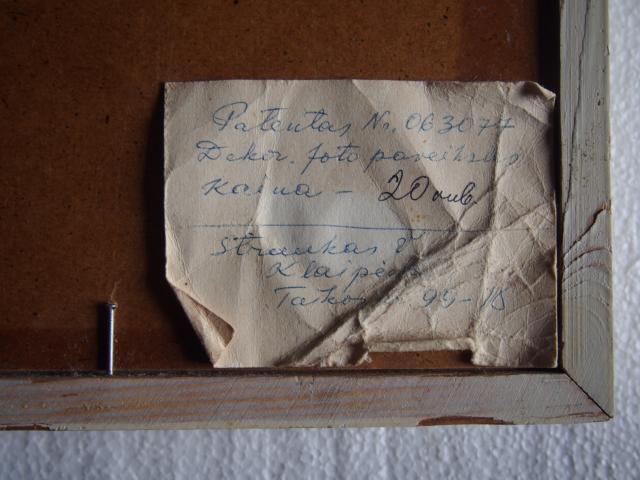 Patentas Nr. 063077
Dekor. foto paveikslas
Kaina - 20 rub.
Strankas
Klaipėda
Taikos 95-18